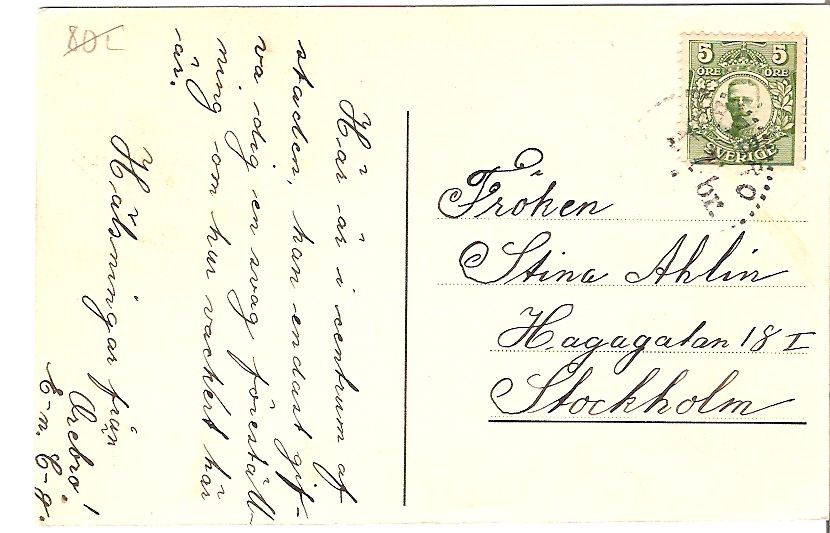 80 L
Här är i centrum af
staden, kan endast gif-
va dig en svag föreställ-
ning om hur vackert här
är.
Hälsningar från
Örebro!
E-n. E-g.
5 5
ÖRE ÖRE
SVERIGE
Fröken
Stina Ahlin
Hagagatan 18 I
Stockholm